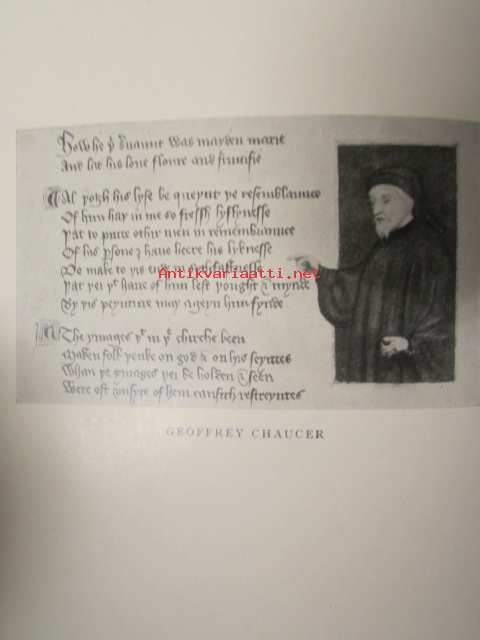 How he þͭ ẜuaunt was mayden marie
And lat his loue floure and fructifie
Al þogh his lyfe be queynt þe resemblaunce
Of him haþ in me so fressh lyflynesse
Þat to putte othir men in remembraunce
Of his ꝑsone I haue heere his lyknesse
Do make to þis ende in sothfastnesse
Þat þei þͭ haue of him left þought & mynde
By þis peynture may ageyn him fynde
The ymages þͭ in þͤ chirche been
Maken folk þenke on god & on his seyntes
Whan þe ymages þei be holden & seen
Were oft of hem causith restreyntes
Antikvariaatti.net
GEOFFREY CHAUCER